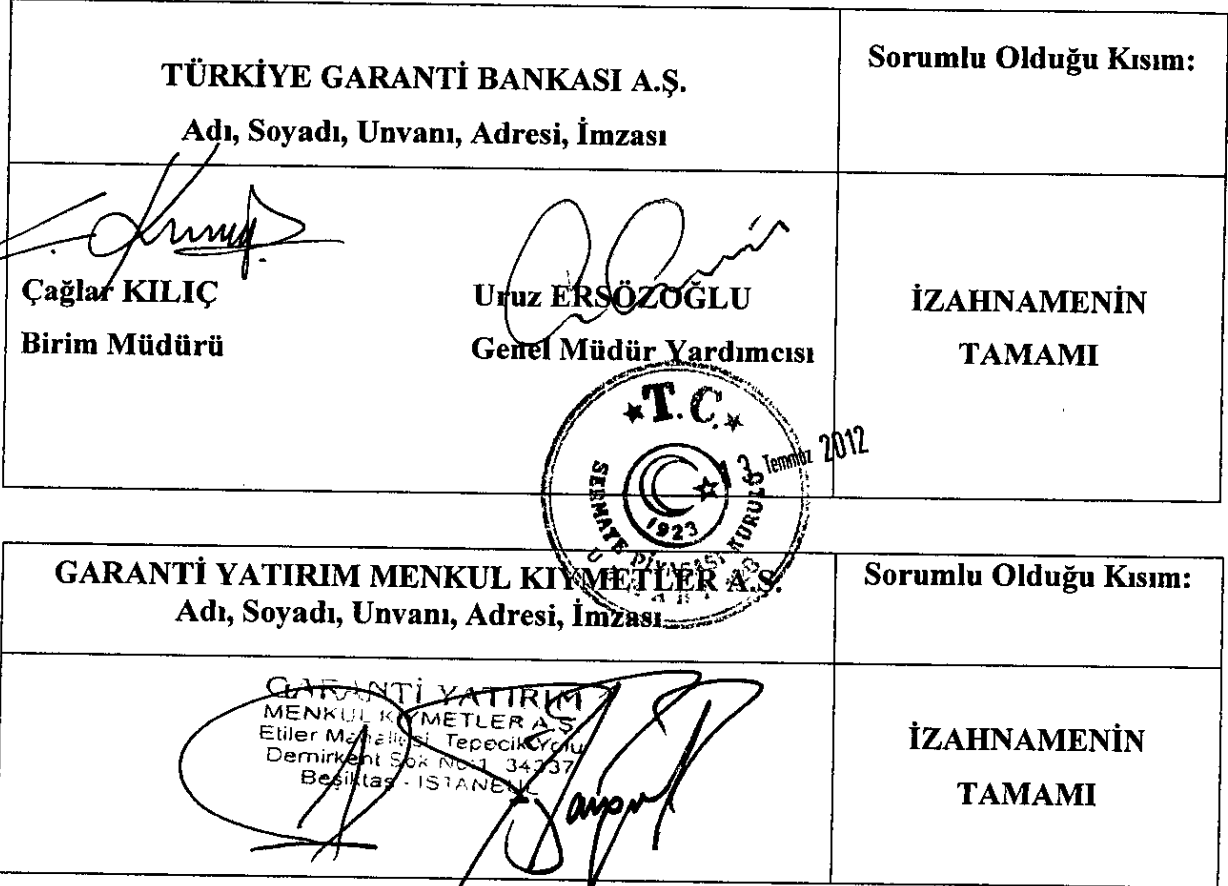 TÜRKİYE GARANTİ BANKASI A.Ş.
Adı, Soyadı, Unvanı, Adresi, İmzası
Sorumlu Olduğu Kısım:
Çağlar KILIÇ
Birim Müdürü
Uruz ERSÖZOĞLU
Genel Müdür Yardımcısı
İZAHNAMENİN
TAMAMI
T.C.
SERMAYE PİYASASI KURULU
1923
3 Temmuz 2012
GARANTİ YATIRIM MENKUL KIYMETLER A.Ş.
Adı, Soyadı, Unvanı, Adresi, İmzası
Sorumlu Olduğu Kısım:
GARANTİ YATIRIM
MENKUL KIYMETLER A.Ş.
Etiler Mahallesi Tepecik Yolu
Demirkent Sok No:1 34337
Beşiktaş - İSTANBUL
İZAHNAMENİN
TAMAMI